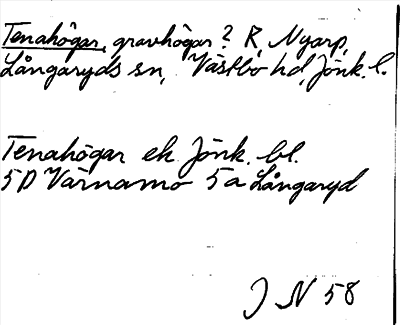 Tenahögar, gravhögar? R, Nyarp,
Långaryds sn, Västbo hd, Jönk. l.
Tenahögar ek. Jönk. bl.
5D Värnamo 5a Långaryd
J N 58